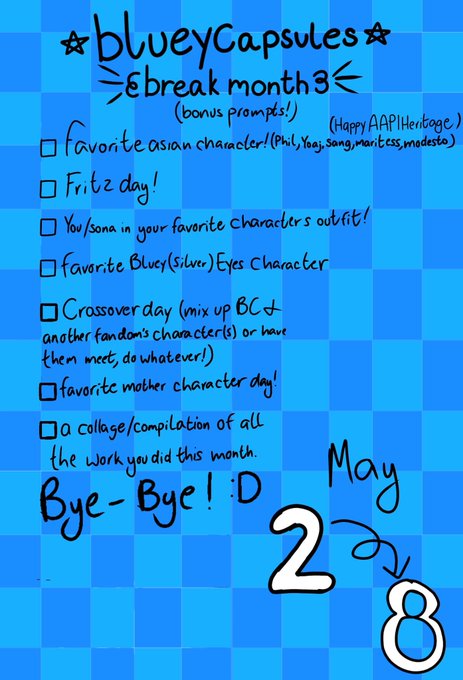 ☆blueyCapsules☆
&break month3
(bonus prompts!)
(Happy AAPI Heritage)
favorite asian character!(Phil, Yoaj, Sang, maritess, modesto)
Fritz day!
You/sona in your favorite characters outfit!
favorite Bluey(silver) Eyes Character
Crossover day (mix up BC &
another fandom's character(s) or have
them meet, do whatever!)
favorite mother character day!
a collage/compilation of all
the work you did this month.
Bye-Bye! :D
May
2
8